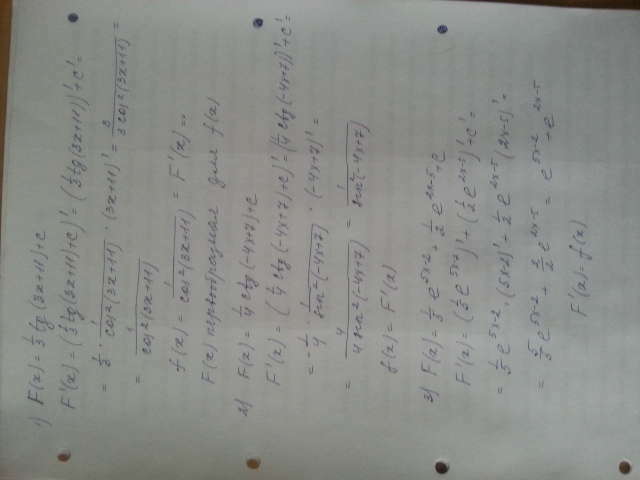 1) F(x) = 1/3 tg(3x+11)+c
F'(x) = (1/3 tg(3x+11)+c)' = (1/3 tg(3x+11))' + c' =
= 1/3 · 1/cos²(3x+11) · (3x+11)' = 3/3cos²(3x+11) =
= 1/cos²(3x+11)
f(x) = 1/cos²(3x+11) = F'(x) =>
F(x) первообразная для f(x)
2) F(x) = 1/4 ctg(-4x+7)+c
F'(x) = (1/4 ctg(-4x+7)+c)' = (1/4 ctg(-4x+7))' + c' =
= -1/4 · 1/sin²(-4x+7) · (-4x+7)' =
= 4/4sin²(-4x+7) = 1/sin²(-4x+7)
f(x) = F'(x)
3) F(x) = 1/5 e^5x-2 + 1/2 e^2x-5 + c
F'(x) = (1/5 e^5x-2)' + (1/2 e^2x-5)' + c' =
= 1/5 e^5x-2 · (5x-2)' + 1/2 e^2x-5 (2x-5)' =
= 5/5 e^5x-2 + 2/2 e^2x-5 = e^5x-2 + e^2x-5
F'(x) = f(x)